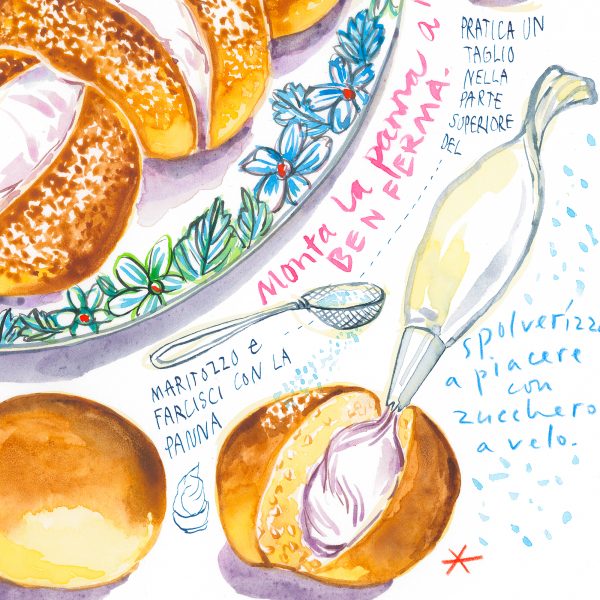 Monta la panna a
BEN FERMA.
PRATICA UN
TAGLIO
NELLA
PARTE
SUPERIORE
DEL
MARITOZZO E
FARCISCI CON LA
PANNA
spolverizza
a piacere
con
zucchero
a velo.